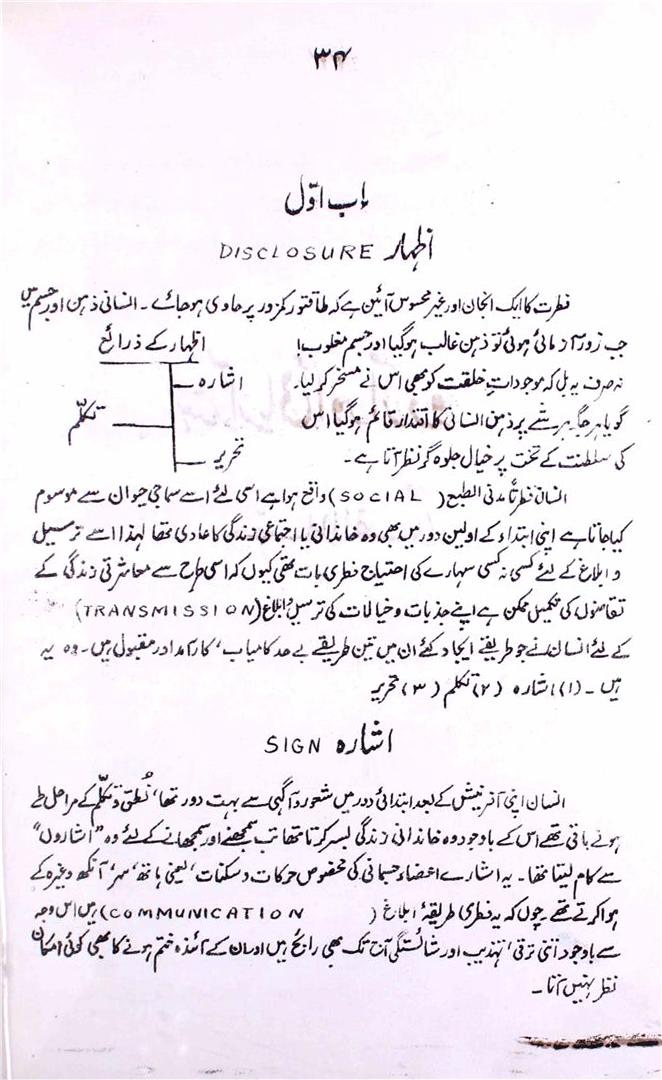 ۳۴
باب اوّل
اظہار DISCLOSURE
فطرت کا ایک انجان اور غیر محسوس آئین ہے کہ طاقتور کمزور پر حاوی ہو جائے ۔ انسانی ذہن اور جسم میں
جب زور آزمائی ہوئی تو ذہن غالب ہو گیا اور جسم مغلوب!
نہ صرف یہ بل کہ موجوداتِ خلقت کو بھی اس نے مسخر کر لیا ۔
گویا ہر جگہ ہر شے پر ذہن انسانی کا اقتدار قائم ہو گیا اس
کی سلطنت کے تخت پر خیال جلوہ گر نظر آتا ہے ۔
اظہار کے ذرائع
اشارہ
تکلّم
تحریر
انسان فطرتاً مدنی الطبع (SOCIAL) واقع ہوا ہے اسی لئے اسے سماجی حیوان سے موسوم
کیا جاتا ہے اپنی ابتداء کے اولین دور میں بھی وہ خاندانی یا اجتماعی زندگی کا عادی تھا لہذا اسے ترسیل
و ابلاغ کے لئے کسی نہ کسی سہارے کی احتیاج فطری بات تھی کیوں کہ اسی طرح سے معاشرتی زندگی کے
تقاضوں کی تکمیل ممکن ہے اپنے جذبات و خیالات کی ترسیل و ابلاغ (TRANSMISSION)
کے لئے انسان نے جو طریقے ایجاد کئے ان میں تین طریقے بے حد کامیاب ، کارآمد اور مقبول ہیں ۔ وہ یہ
ہیں ۔ (۱) اشارہ (۲) تکلم (۳) تحریر
اشارہ SIGN
انسان اپنی آفرینش کے بعد ابتدائی دور میں شعور و آگہی سے بہت دور تھا ، نُطق و تکلّم کے مراحل طے
ہونے باقی تھے اس کے باوجود وہ خاندانی زندگی بسر کرتا تھا تب سمجھنے اور سمجھانے کے لئے وہ "اشاروں"
سے کام لیتا تھا ۔ یہ اشارے اعضاء جسمانی کی مخصوص حرکات و سکنات ، یعنی ہاتھ ، سر ، آنکھ وغیرہ کے
ہوا کرتے تھے چوں کہ یہ فطری طریقۂ ابلاغ (COMMUNICATION) ہیں اس وجہ
سے باوجود اتنی ترقی ، تہذیب اور شائستگی آج تک بھی رائج ہیں اور ان کے آئندہ ختم ہونے کا بھی کوئی امکان
نظر نہیں آتا ۔